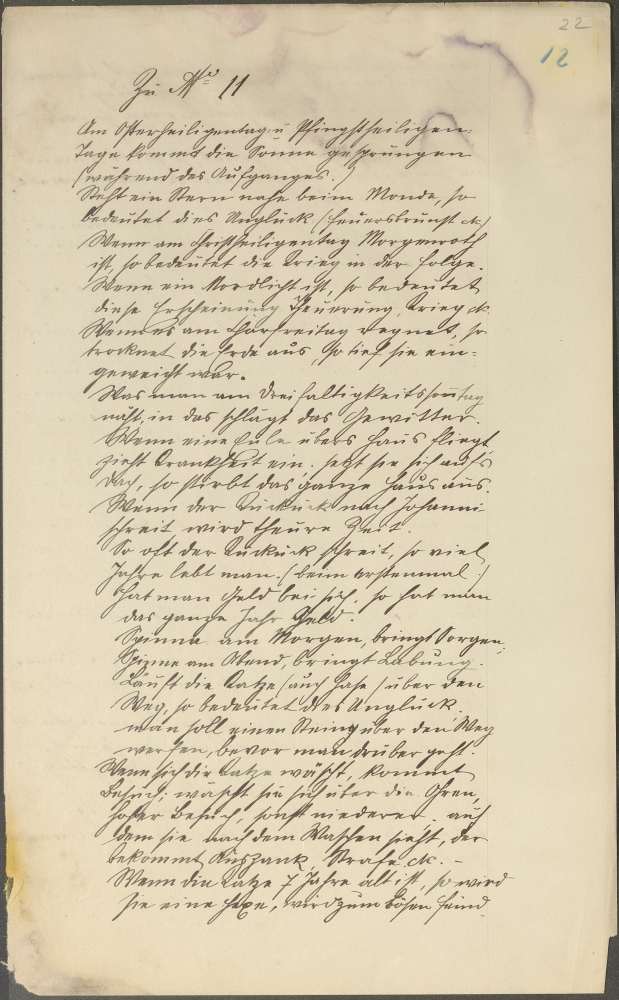 22
12
Zu No 11
Am Osterheiligentag u Pfingstheiligen-
Tage kommt die Sonne gesprungen
(während des Aufganges.)
Steht ein Stern nahe beim Monde, so
bedeutet dies Unglück (Feuersbrunst etc)
Wenn am Christheiligentag Morgenroth
ist, so bedeutet die Krieg in der Folge.
Wenn ein Nordlicht ist, so bedeutet
diese Erscheinung Theuerung, Krieg etc.
Wenn es am Charfreitag regnet, so
trocknet die Erde aus, so tief sie ein-
geweicht war.
Was man am Dreifaltigkeitssontag
näht, in das schlägt das Gewitter.
Wenn eine Eule übers Haus fliegt
zieht Krankheit ein, setzt sie sich aufs
Dach, so stirbt das ganze Haus aus.
Wenn der Kuckuck nach Johanni
schreit wird theure Zeit.
So oft der Kuckuck schreit, so viel
Jahre lebt man. (beim erstenmal:)
Hat man Geld bei sich, so hat man
das ganze Jahr Geld.
Spinne am Morgen, bringt Sorgen,
Spinne am Abend, bringt Labung.
Läuft die Katze (auch Hase) über den
Weg, so bedeutet dies Unglück,
man soll einen Stein über den Weg
werfen, bevor man drüber geht.
Wenn sich die Katze wäscht, kommt
Besuch; wascht sie sich über die Ohren,
hoher Besuch, sonst niederer. auf
dem sie nach dem Waschen sieht, der
bekommt Strafe etc. -
Wenn die Katze 7 Jahre alt ist, so wird
sie eine Hexe, wird zum bösen Feind